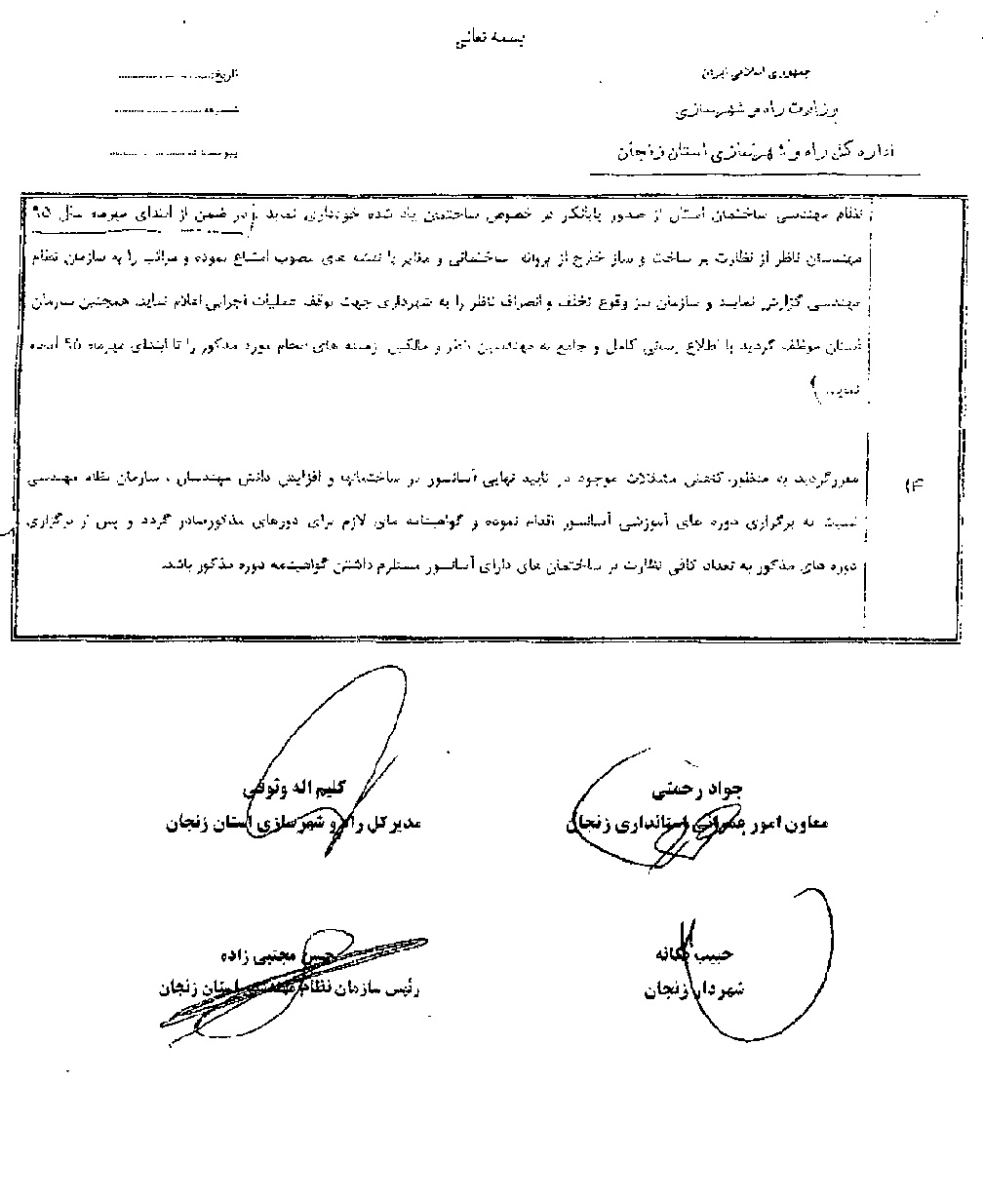 بسمه تعالی
جمهوری اسلامی ایران
وزارت راه و شهرسازی
اداره کل راه و شهرسازی استان زنجان
تاریخ
شماره
پیوست
نظام مهندسی ساختمان استان از صدور پایانکار در خصوص ساختمان یاد شده خودداری نماید در ضمن از ابتدای مهرماه سال ۹۵
مهندسان ناظر از نظارت بر ساخت و ساز خارج از پروانه ساختمانی و مغایر با نقشه های مصوب امتناع نموده و مراتب را به سازمان نظام
مهندسی گزارش نمایند و سازمان نیز وقوع تخلف و انصراف ناظر را به شهرداری جهت توقف عملیات اجرایی اعلام نماید. همچنین سازمان
استان موظف گردید با اطلاع رسانی کامل و جامع به مهندسین ناظر و مالکین زمینه های انجام مورد مذکور را تا ابتدای مهرماه ۹۵ آماده
نماید.)
۴)
مقررگردید به منظور کاهش مشکلات موجود در تایید نهایی آسانسور در ساختمانها و افزایش دانش مهندسان ، سازمان نظام مهندسی
نسبت به برگزاری دوره های آموزشی آسانسور اقدام نموده و گواهینامه های لازم برای دورهای مذکورصادر گردد و پس از برگزاری
دوره های مذکور به تعداد کافی نظارت بر ساختمان های دارای آسانسور مستلزم داشتن گواهینامه دوره مذکور باشد.
جواد رحمتی
معاون امور عمرانی استانداری زنجان
کلیم اله وثوقی
مدیرکل راه و شهرسازی استان زنجان
حبیب یگانه
شهردار زنجان
حسن مجتبی زاده
رئیس سازمان نظام مهندسی استان زنجان